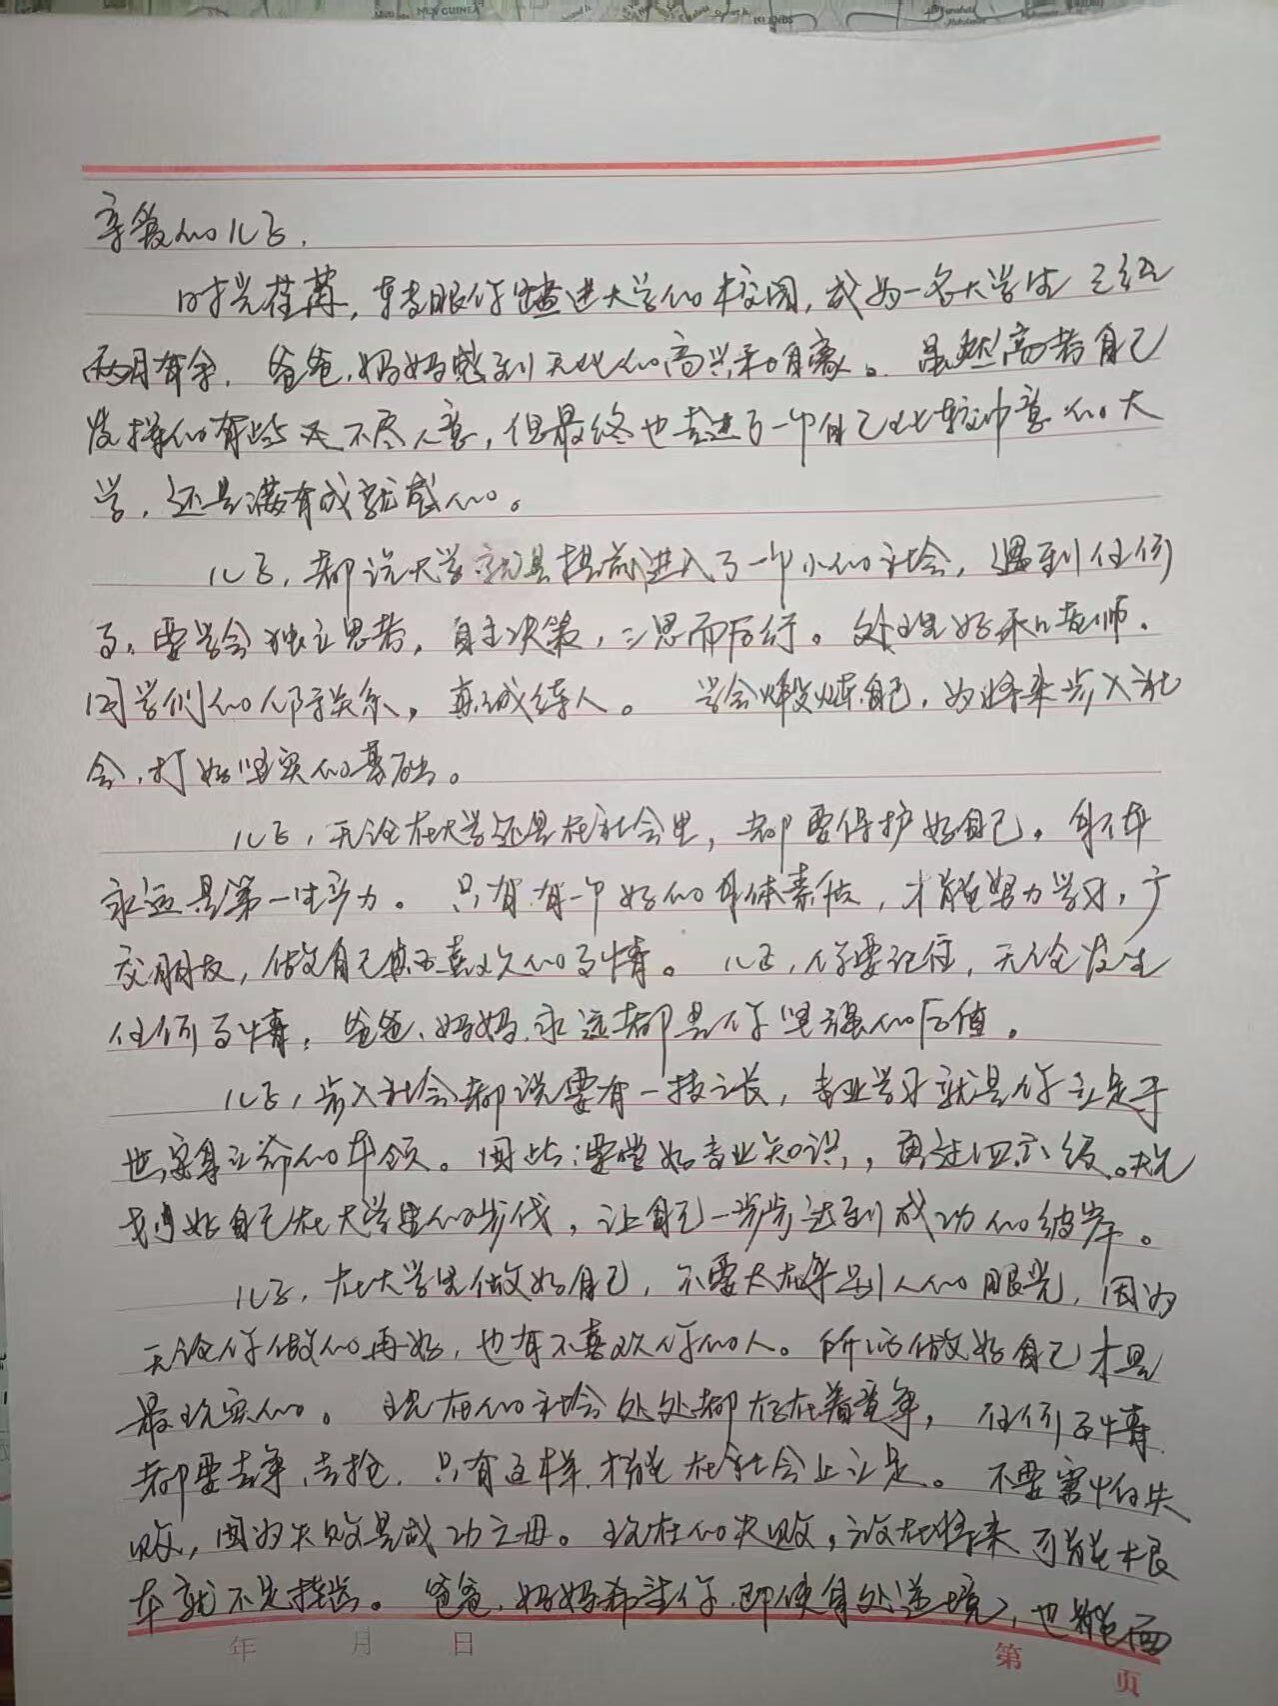 NEW GUINEA
亲爱的儿子,
时光荏苒,转眼你踏进大学的校园,成为一名大学生已经
两月有余,爸爸、妈妈感到无比的高兴和自豪。虽然高考自己
发挥的有些差不尽人意,但最终也走进了一个自己比较中意的大
学,还是满有成就感的。
儿子,都说大学就是提前进入了一个小的社会,遇到任何
事,要学会独立思考,自主决策,三思而后行。处理好和老师、
同学们的人际关系,真诚待人。学会煅炼自己,为将来步入社
会,打好坚实的基础。
儿子,无论在大学还是在社会里,都要保护好自己。身体
永远是第一生产力。只有有一个好的身体素质,才能努力学习,广
交朋友,做自己真正喜欢的事情。儿子,你要记住,无论发生
任何事情,爸爸、妈妈永远都是你坚强的后盾。
儿子,步入社会都说要有一技之长,专业学习就是你立足于
世,安身立命的本领。因此:要学好专业知识,,再过四六级。规
划好自己在大学里的步伐,让自己一步步达到成功的彼岸。
儿子,在大学里做好自己,不要太在乎别人的眼光,因为
无论你做的再好,也有不喜欢你的人。所以做好自己才是
最现实的。现在的社会处处都存在着竞争,任何事情
都要去争、去抢,只有这样才能在社会上立足。不要害怕失
败,因为失败是成功之母。现在的失败,放在将来可能根
本就不足挂齿。爸爸、妈妈希望你,即使身处逆境,也能面
年 月 日
第 页